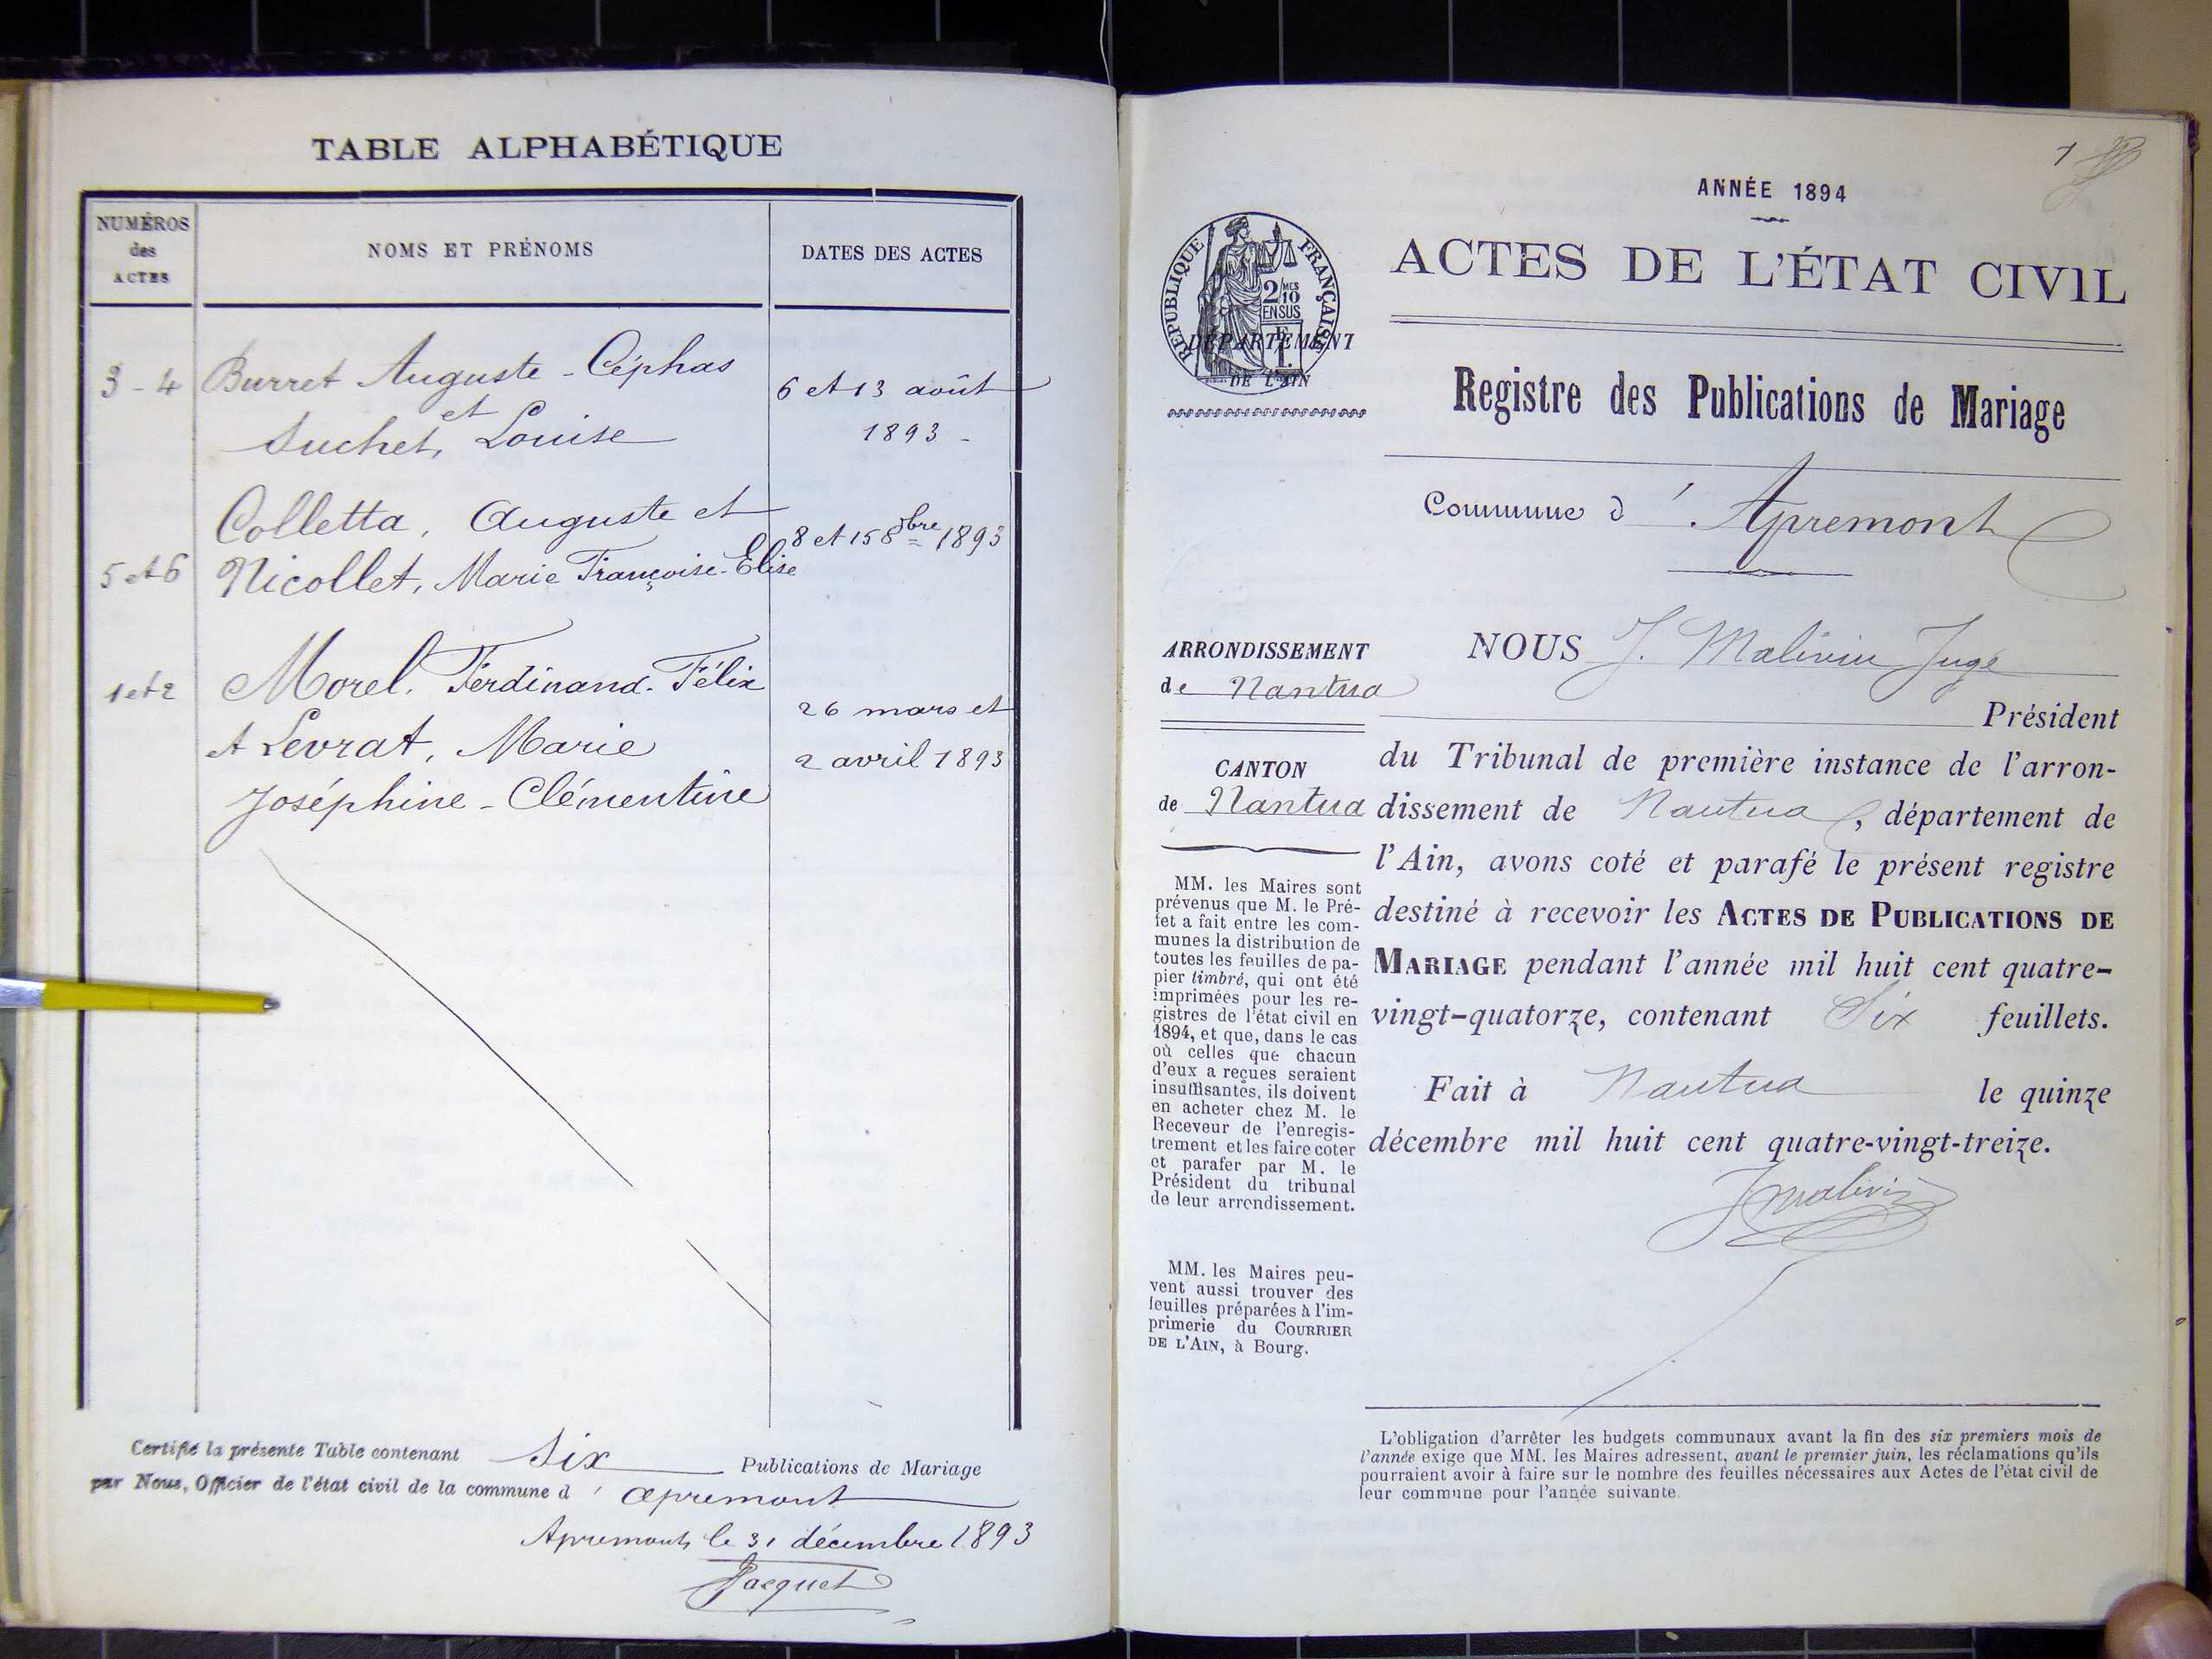 TABLE ALPHABÉTIQUE
NUMÉROS
des
ACTES
NOMS ET PRÉNOMS
DATES DES ACTES
3 - 4
Burret Auguste - Céphas
et
Suchet, Louise
6 et 13 août
1893 -
5 et 6
Colletta, Auguste et
Nicollet, Marie Françoise-Elise
8 et 15 8bre 1893
1 et 2
Morel, Ferdinand-Félix
et Levrat, Marie
Joséphine - Clémentine
26 mars et
2 avril 1893
Certifié la présente Table contenant Six Publications de Mariage
par Nous, Officier de l'état civil de la commune d' Apremont
Apremont, le 31 décembre 1893
Jacquet
1
ANNÉE 1894
ACTES DE L'ÉTAT CIVIL
RÉPUBLIQUE FRANÇAISE
2 MES
10
EN SUS
DÉPARTEMENT
DE L'AIN
Registre des Publications de Mariage
Commune d' Apremont
ARRONDISSEMENT
de Nantua
CANTON
de Nantua
MM. les Maires sont
prévenus que M. le Pré-
fet a fait entre les com-
munes la distribution de
toutes les feuilles de pa-
pier timbré, qui ont été
imprimées pour les re-
gistres de l'état civil en
1894, et que, dans le cas
où celles que chacun
d'eux a reçues seraient
insuffisantes, ils doivent
en acheter chez M. le
Receveur de l'enregis-
trement et les faire coter
et parafer par M. le
Président du tribunal
de leur arrondissement.
MM. les Maires peu-
vent aussi trouver des
feuilles préparées à l'im-
primerie du COURRIER
DE L'AIN, à Bourg.
NOUS J. Malivin Juge
Président
du Tribunal de première instance de l'arron-
dissement de Nantua, département de
l'Ain, avons coté et parafé le présent registre
destiné à recevoir les ACTES DE PUBLICATIONS DE
MARIAGE pendant l'année mil huit cent quatre-
vingt-quatorze, contenant Six feuillets.
Fait à Nantua le quinze
décembre mil huit cent quatre-vingt-treize.
JMalivin
L'obligation d'arrêter les budgets communaux avant la fin des six premiers mois de
l'année exige que MM. les Maires adressent, avant le premier juin, les réclamations qu'ils
pourraient avoir à faire sur le nombre des feuilles nécessaires aux Actes de l'état civil de
leur commune pour l'année suivante.